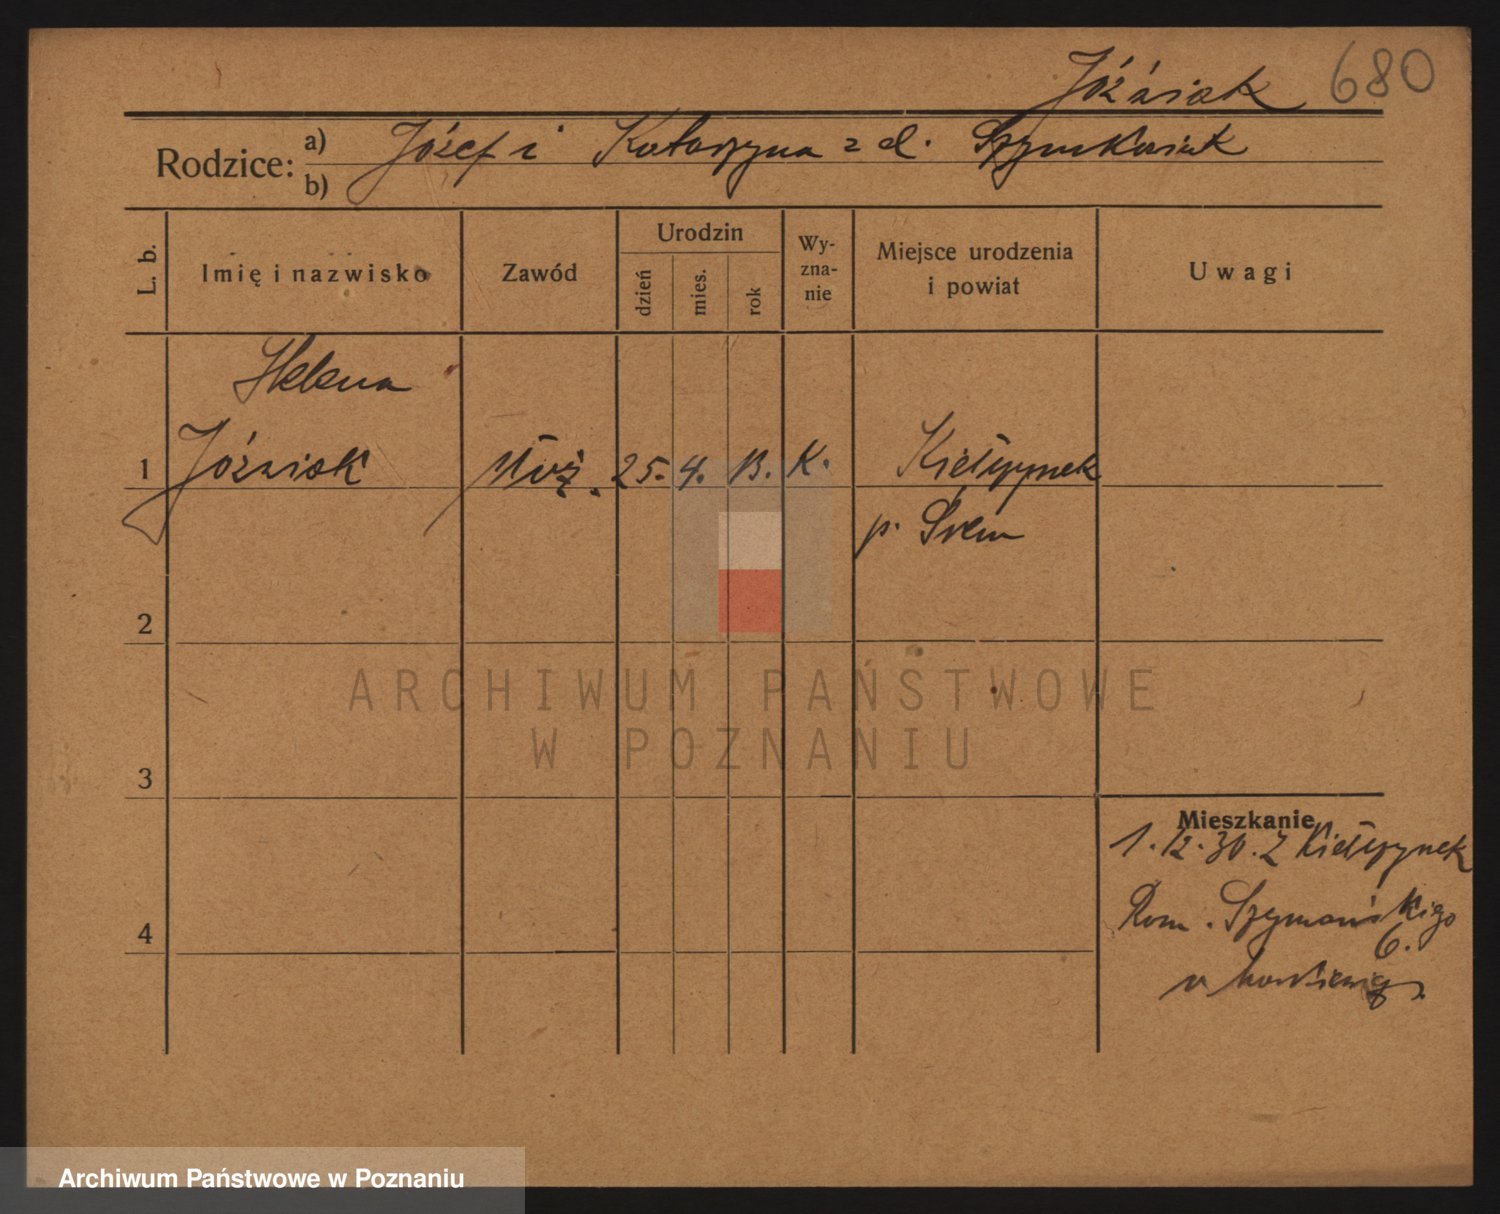 Jóźwiak 680
Rodzice: a) Józef i Katarzyna z d. Szymkowiak
b)
L. b.
Imię i nazwisko
Zawód
Urodzin
dzień
mies.
rok
Wy-
zna-
nie
Miejsce urodzenia
i powiat
Uwagi
Helena
1 Jóźwiak służ. 25. 4. 13. K. Kiełczynek
p. Śrem
2
ARCHIWUM PAŃSTWOWE
W POZNANIU
3
Mieszkanie
1.12.30. Z Kiełczynek
Rom. Szymańskiego
6.
4
Archiwum Państwowe w Poznaniu